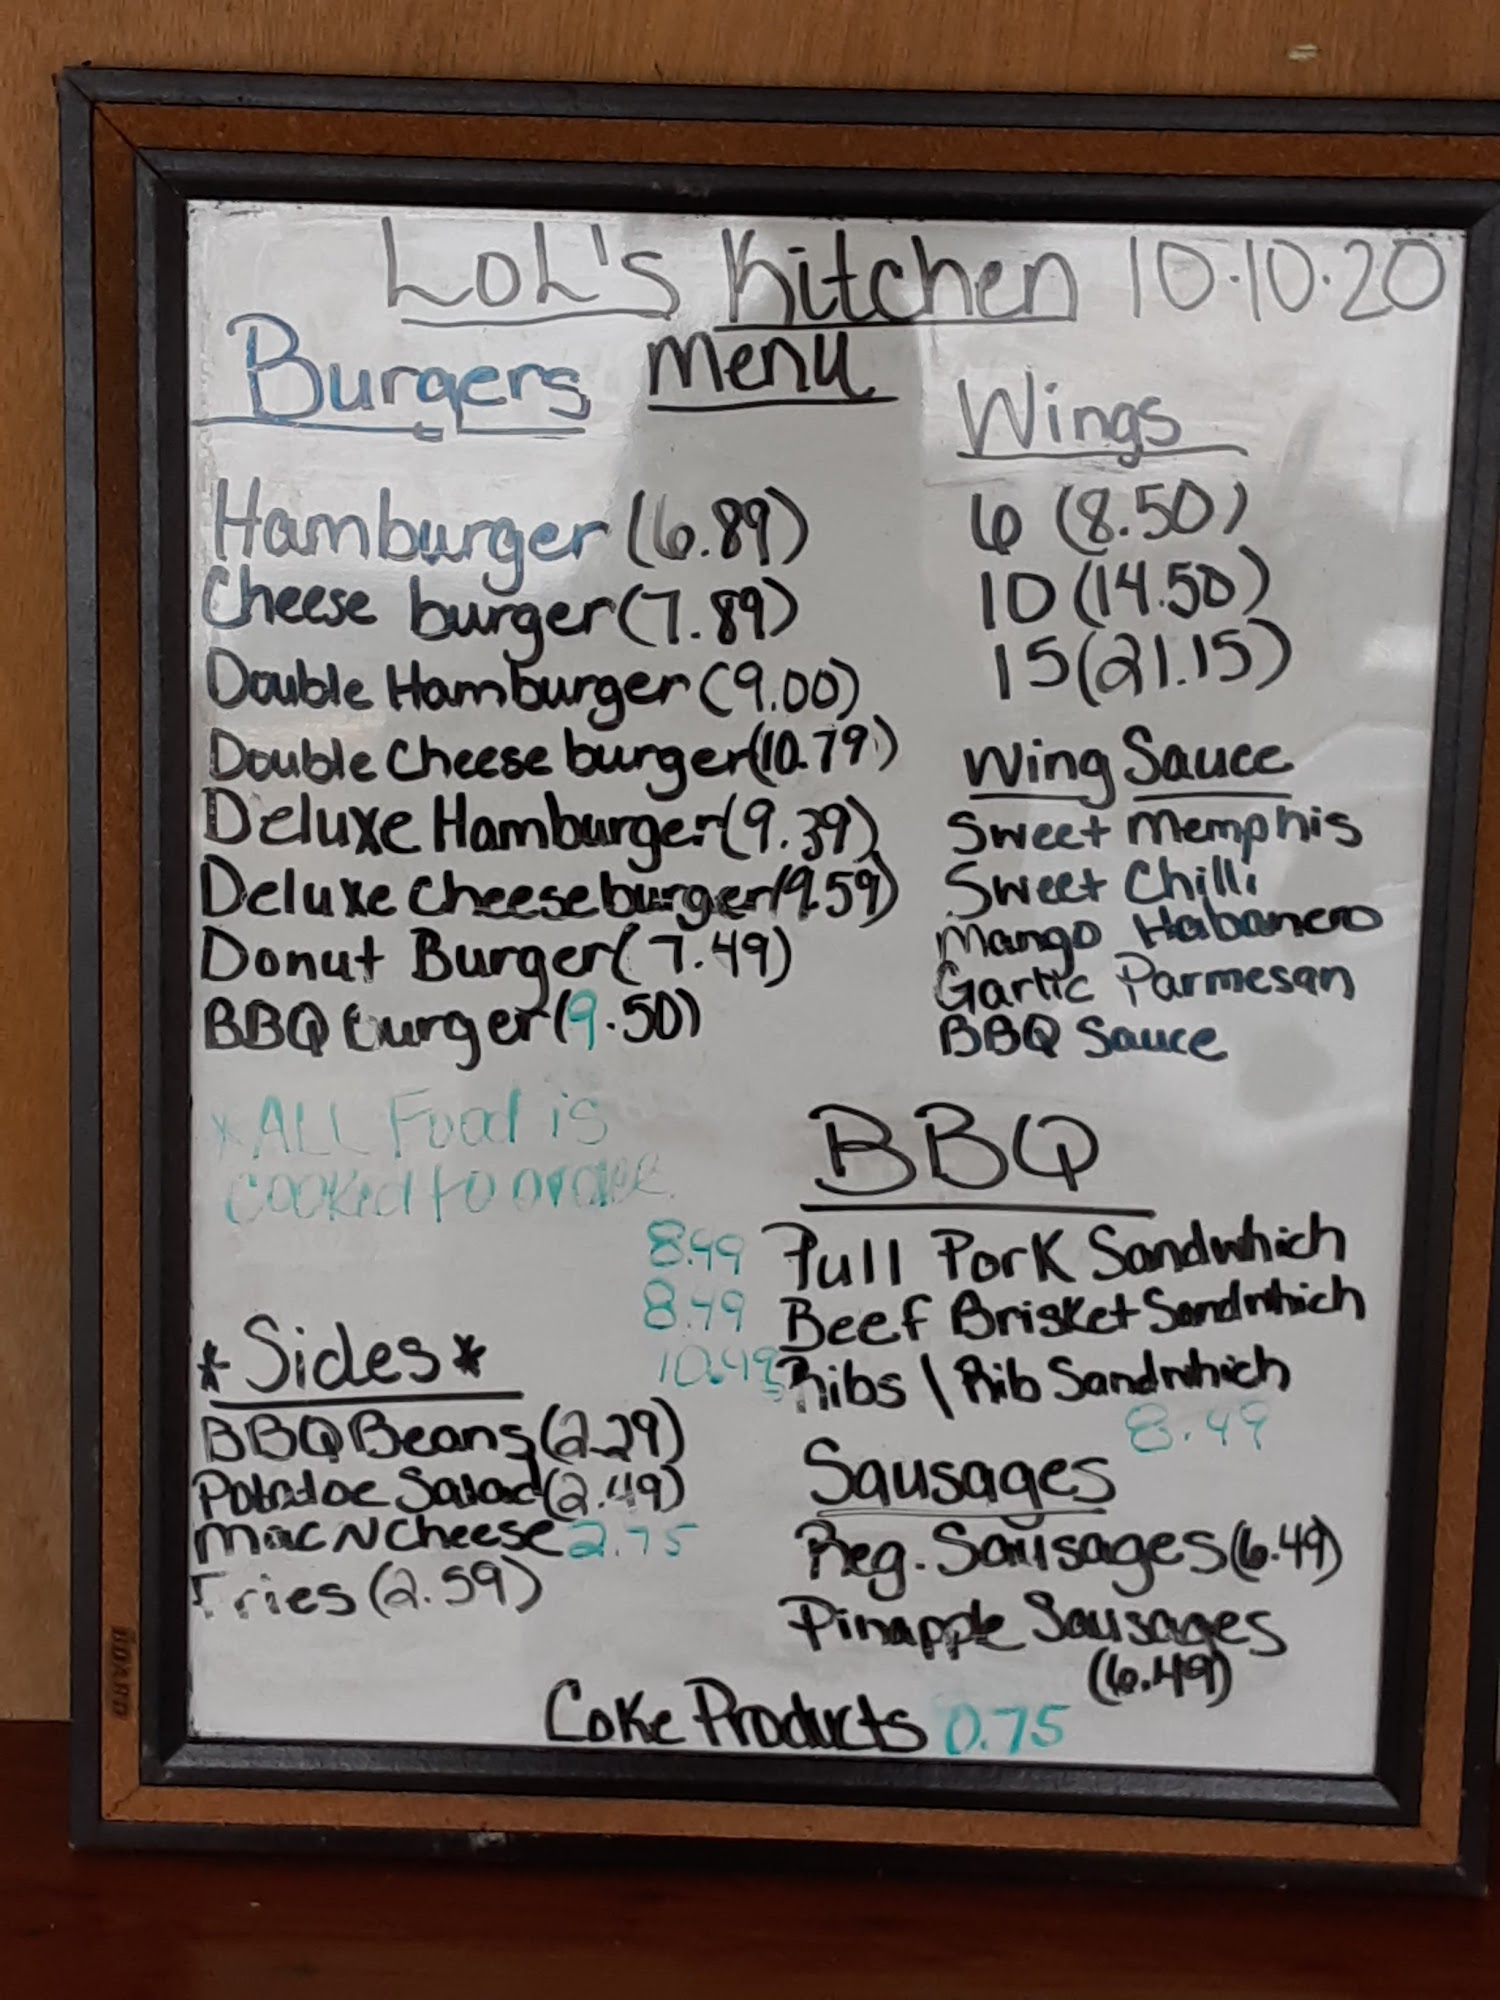 LOL's Kitchen 10.10.20
Menu
Burgers
Hamburger (6.89)
Cheese burger (7.89)
Double Hamburger (9.00)
Double Cheese burger (10.79)
Deluxe Hamburger (9.39)
Deluxe Cheese burger (9.59)
Donut Burger (7.49)
BBQ burger (9.50)
*ALL Food is
cooked to order.
*Sides*
BBQ Beans (2.29)
Potatoe Salad (2.49)
Mac N Cheese 2.75
Fries (2.59)
Wings
6 (8.50)
10 (14.50)
15 (21.15)
Wing Sauce
Sweet Memphis
Sweet Chilli
Mango Habanero
Garlic Parmesan
BBQ Sauce
BBQ
8.49 Pull Pork Sandwhich
8.49 Beef Brisket Sandwhich
10.49 Ribs \ Rib Sandwhich
8.49
Sausages
Reg. Sausages (6.49)
Pinapple Sausages
(6.49)
Coke Products 0.75
BOARD